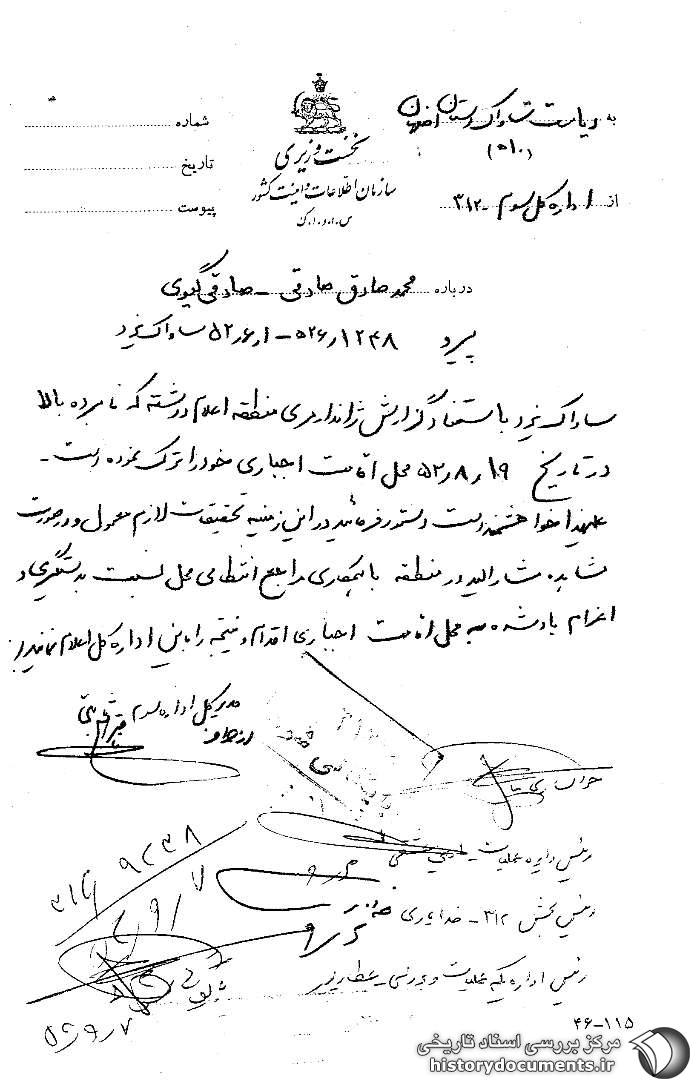 به ریاست ساواک استان اصفهان
(۵۱۰)
از اداره کل سوم - ۳۱۲
نخست وزیری
سازمان اطلاعات و امنیت کشور
س.ا.و.ا.ک
شماره
تاریخ
پیوست
درباره محمد صادق صادقی - صادقی گیوی
پیرو ۵۲۶/۱۲۴۸ - ۵۲/۶/۱ ساواک یزد
ساواک یزد باستناد گزارش ژاندارمری منطقه اعلام داشته که نامبرده بالا
در تاریخ ۵۲/۸/۱۹ محل اقامت اجباری خود را ترک نموده است -
علیهذا خواهشمند است دستور فرمائید در این زمینه تحقیقات لازم معمول و در صورت
مشاهده مشارالیه در منطقه با همکاری مراجع انتظامی محل نسبت بدستگیری و
اعزام یاد شده به محل اقامت اجباری اقدام و نتیجه را باین اداره کل اعلام نمایند
مدیر کل اداره سوم
از طرف
رئیس دایره عملیات
رئیس بخش ۳۱۲ - خدایاری
رئیس اداره یکم عملیات و بررسی - عطارپور
۹۲۳۸
۳۱۲
۵۲/۹/۷
۴۶-۱۱۵
مرکز بررسی اسناد تاریخی
historydocuments.ir